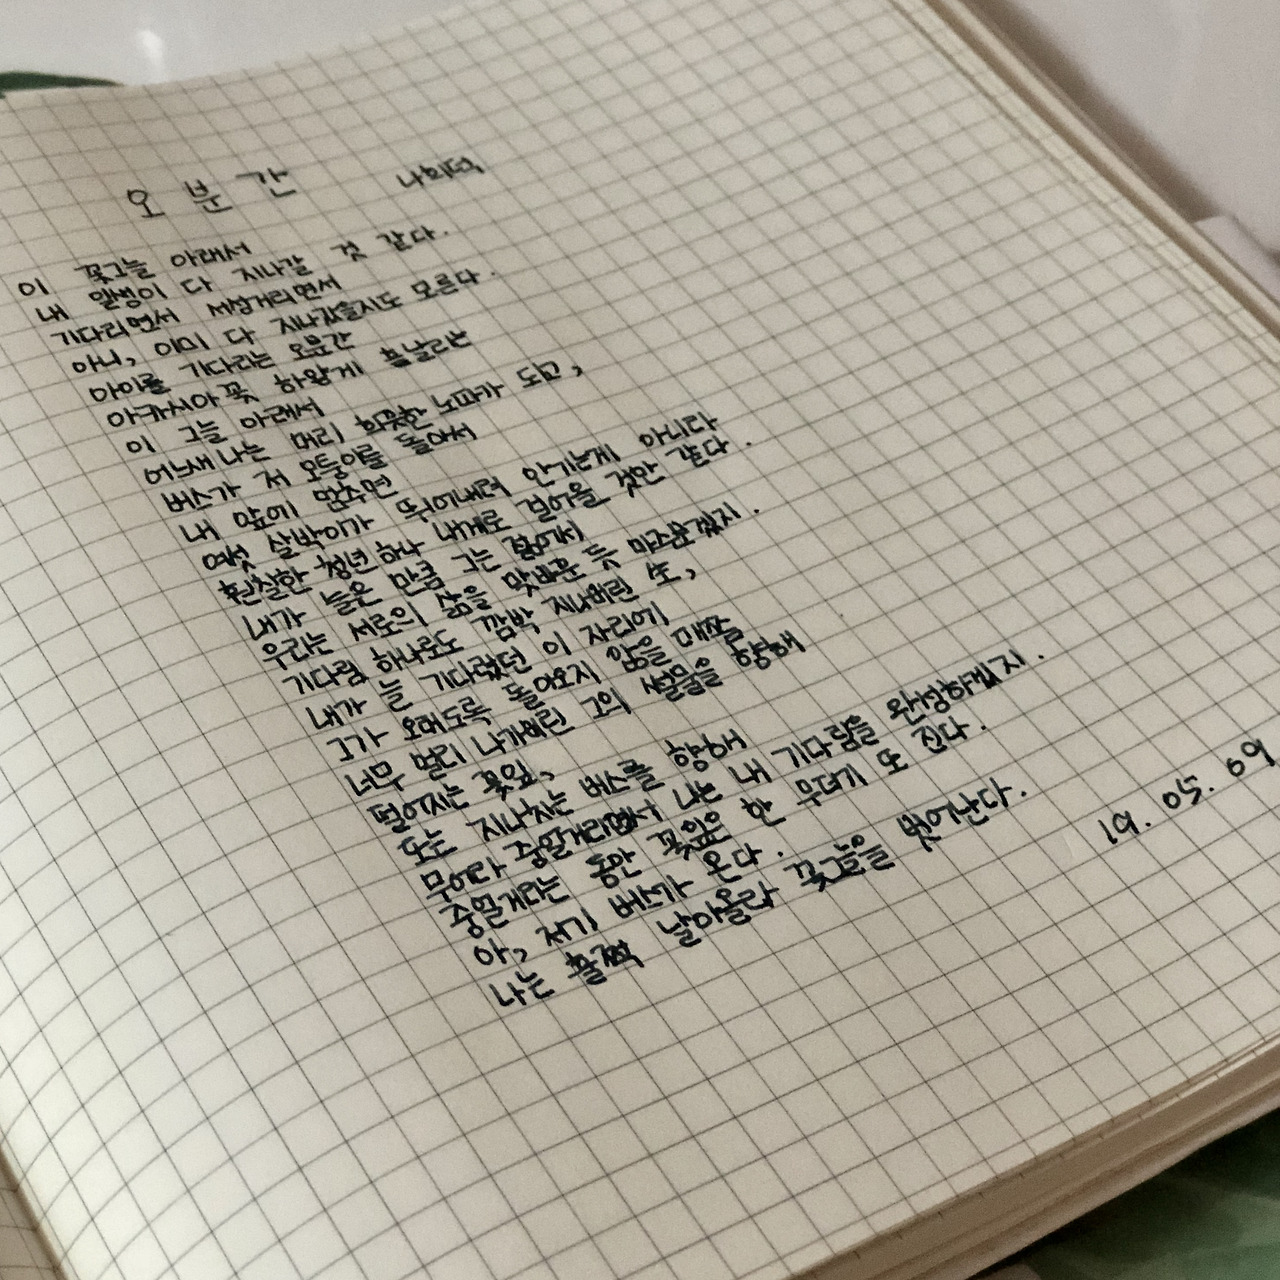 오 분 간 나희덕
이 꽃그늘 아래서
내 일생이 다 지나갈 것 같다.
기다리면서 서성거리면서
아니, 이미 다 지나갔을지도 모른다.
아이를 기다리는 오분간
아카시아꽃 하얗게 흩날리는
이 그늘 아래서
어느새 나는 머리 희끗한 노파가 되고,
버스가 저 모퉁이를 돌아서
내 앞에 멈추면
여섯 살박이가 뛰어내려 안기는게 아니라
훤칠한 청년 하나 내게로 걸어올 것만 같다.
내가 늙은 만큼 그는 젊어서
우리는 서로의 삶을 맞바꾼 듯 마주보겠지.
기다림 하나로도 깜박 지나버린 生,
내가 늘 기다렸던 이 자리에
그가 오래도록 돌아오지 않을 때쯤
너무 멀리 나가버린 그의 썰물을 향해
떨어지는 꽃잎,
또는 지나치는 버스를 향해
무어라 중얼거리면서 나는 내 기다림을 완성하겠지.
중얼거리는 동안 꽃잎은 한 무더기 또 진다.
아, 저기 버스가 온다.
나는 훌쩍 날아올라 꽃그늘을 벗어난다.
19. 05. 09